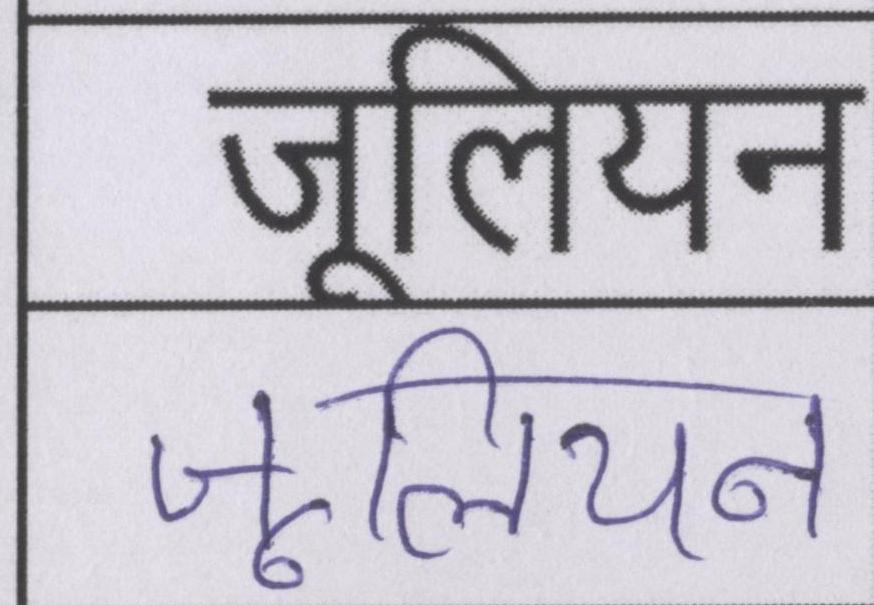 जूलियन
जूलियन